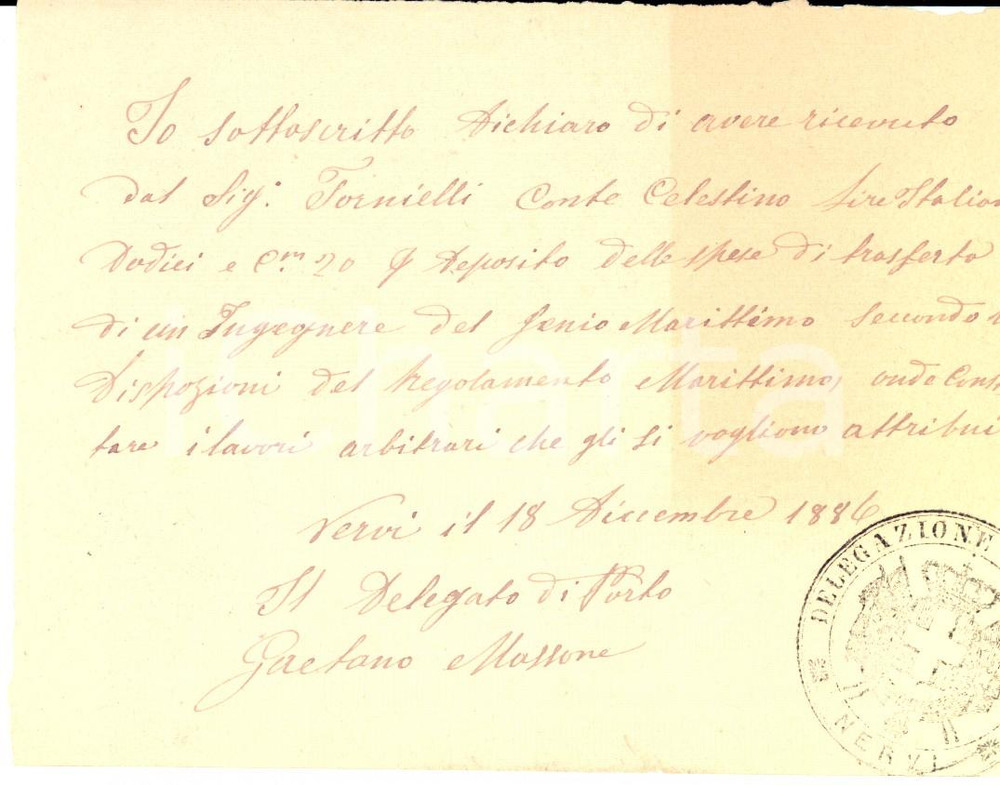 Io sottoscritto Dichiaro di avere ricevuto
dal Sig.r Tornielli Conte Celestino lire Italian
Dodici e C.mi 20 p Deposito delle spese di trasferta
di un Ingegnere del Genio Marittimo secondo
Disposizioni del Regolamento Marittimo, onde Cons
tare i lavori arbitrari che gli si vogliono attribui
Nervi il 18 Dicembre 1886
Il Delegato di Porto
Gaetano Massone
DELEGAZIONE
NERVI
charta